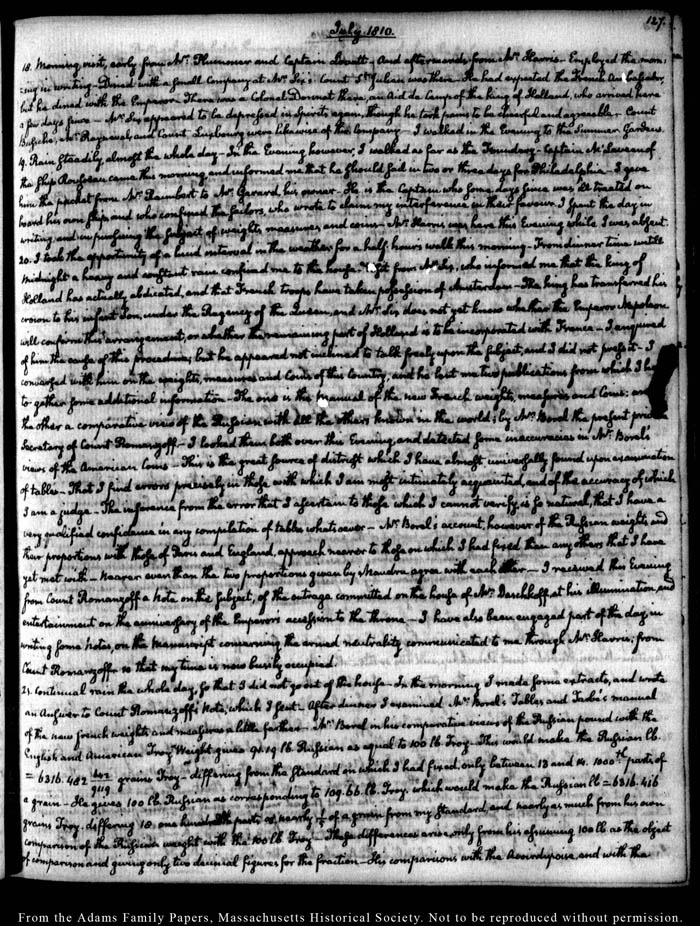 127.
July 1810.
18. Morning visit, early from Mr. Plummer and Captain Leavitt - And afterwards from Mr. Harris - Employed the morn-
ing in writing - Dined with a small Company at Mr. Six's. Count St. Julien was there. He had expected the French Ambassador,
but he dined with the Emperor. There was a Colonel there, an Aid de Camp of the king of Holland, who arrived here
a few days since - Mr. Six appeared to be depressed in spirits again, though he took pains to be cheerful and agreeable. Count
Bussche, Mr. and Count Luxbourg were likewise of the Company - I walked in the Evening to the Summer Gardens.
19. Rain steadily almost the whole day - In the Evening however, I walked as far as the Foundery - Captain of
the ship Rousseau came this morning, and informed me that he should sail in two or three days for Philadelphia - I gave
him the packet from Mr. Raimbert to Mr. Girard, his owner - He is the Captain who some days since was ill treated on
board his own ship, and who confined the sailors, who wrote to claim my interference in their favour. I spent the day in
writing and in pursuing the subject of weights, measures and coins - Mr. Harris was here this Evening while I was absent.
20. I took the opportunity of a lucid interval in the weather for a half hours walk this morning - From dinner time untill
midnight a heavy and constant rain confined me to the house. Visit from Mr. Six, who informed me that the king of
Holland has actually abdicated, and that French troops have taken possession of Amsterdam - The king has transferred his
crown to his infant Son, under the Regency of the Queen, and Mr. Six does not yet know whether the Emperor Napoleon
will confirm this arrangement, or whether the remaining part of Holland is to be incorporated with France - I enquired
of him the cause of this procedure; but he appeared not inclined to talk freely upon the subject, and I did not press it - I
conversed with him on the weights, measures and Coins of this Country, and he lent me two publications from which I
to gather some additional information - The one is the manual of the new French weights, measures and Coins: and
the other a comparative view of the Russian with all the others known in the world; by Mr. Borel the present
Secretary of Count Romanzoff - I looked them both over this Evening, and detected some inaccuracies in Mr. Borel's
views of the American Coins - This is the great source of distrust which I have almost universally found upon examination
of tables - That I find errors precisely in those with which I am most intimately acquainted, and of the accuracy of which
I am a judge - The inference from the error that I ascertain to those which I cannot verify, is so natural, that I have a
very qualified confidence in any compilation of tables whatsoever - Mr. Borel's account, however of the Russian weights, and
their proportions with those of Paris and England, approach nearer to those on which I had fixed than any others that I have
yet met with - nearer even than the two proportions given by agree with each other - I received this Evening
from Count Romanzoff a Note on the subject, of the outrage committed on the house of Mr. Daschkoff at his illumination, and
entertainment on the anniversary of the Emperors accession to the throne - I have also been engaged part of the day, in
writing some Notes, on the Manuscript concerning the armed neutrality communicated to me through Mr. Harris, from
Count Romanzoff - so that my time is now busily occupied.
21. Continual rain the whole day, so that I did not go out of the house - In the morning I made some extracts, and wrote
an Answer to Count Romanzoff's Note, which I sent - After dinner I examined Mr. Borel's Tables and manual
of the new french weights and measures a little further - Mr. Borel in his comparative views of the Russian pound with the
English and American Troy Weight gives 91.19 lb Russian as equal to 100 lb Troy - This would make the Russian lb
= 6316.482 grains Troy - differing from the Standard on which I had fixed, only between 13 and 14. 1000th parts of
a grain - He gives 100 lb. Russian as corresponding to 109.66 lb. Troy, which would make the Russian lb = 6316.416
grains Troy, differing 18. one hundredth parts or nearly of a grain from my standard, and nearly as much from his own
comparison of the Russian weight with the 100 lb Troy - These differences arise only from his assuming 100 lb as the object
of comparison and giving only two decimal figures for the fraction - His comparisons with the Avoirdupoise, and with the
From the Adams Family Papers, Massachusetts Historical Society. Not to be reproduced without permission.